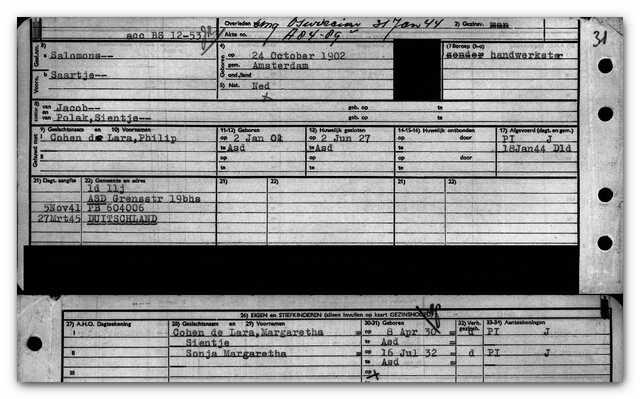 acc BS 12-53
Overleden 31 Jan 44
Akte no. A84-89
2) Gezinsv. man
31
3)
Geslasn.
a Salomons--
b Saartje--
Voorn.
4)
op 24 October 1902
gem. Amsterdam
ond./land
5) Nat. Ned
7) Beroep (h-o)
zonder handwerkster
van Jacob-- geb. op
en
van Polak,Sientje-- geb. op
9) Geslachtsnaam en 10) Voornamen
11-12) Geboren
13) Huwelijk gesloten
14-15-16) Huwelijk ontbonden
17) Afgevoerd (dagt. en gem.)
Gehuwd met
1 Cohen de Lara,Philip
op 2 Jan 02
te Asd
op 2 Jun 27
te Asd
op door
te
PI J
18Jan44 Dld
2
op
te
op
te
op door
te
21) Dagt. aangifte
22) Gemeente en adres
21) 22)
21) 22)
ld llj
ASD Grensstr 19bhs
5Nov41 PB 604006
27Mrt45 DUITSCHLAND
26) EIGEN en STIEFKINDEREN (alleen invullen op kaart GEZINSHOOFD)
27) A.H.O. Dagtekening
28) Geslachtsnaam en 29) Voornamen
30-31) Geboren
32) Verh. gezinh.
33-34) Aantekeningen
1 Cohen de Lara,Margaretha = op 8 Apr 30 = d PI J
Sientje te Asd
2 Sonja Margaretha = op 16 Jul 32 = d PI J
te Asd
op